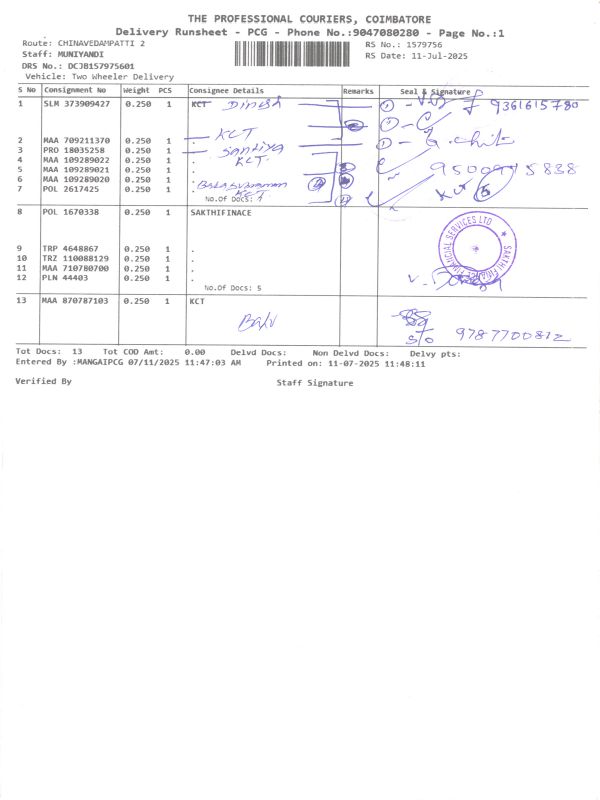 THE PROFESSIONAL COURIERS, COIMBATORE
Delivery Runsheet - PCG - Phone No.:9047080280 - Page No.:1
Route: CHINAVEDAMPATTI 2 RS No.: 1579756
Staff: MUNIYANDI RS Date: 11-Jul-2025
DRS No.: DCJB157975601
Vehicle: Two Wheeler Delivery
S No Consignment No Weight PCS Consignee Details Remarks Seal & Signature
1 SLM 373909427 0.250 1 KCT Dinesh 9361615780
2 MAA 709211370 0.250 1 . KCT
3 PRO 18035258 0.250 1 . Sandiya
4 MAA 109289022 0.250 1 . KCT.
5 MAA 109289021 0.250 1 .
6 MAA 109289020 0.250 1 . Balasubramman
7 POL 2617425 0.250 1 . KCT.
No.Of Docs: 7
KCT
8 POL 1670338 0.250 1 SAKTHIFINACE
SAKTHI FINANCIAL SERVICES LTD
9 TRP 4648867 0.250 1 .
10 TRZ 110088129 0.250 1 .
11 MAA 710780700 0.250 1 .
12 PLN 44403 0.250 1 .
No.Of Docs: 5
13 MAA 870787103 0.250 1 KCT
Balu S/o 9787700812
Tot Docs: 13 Tot COD Amt: 0.00 Delvd Docs: Non Delvd Docs: Delvy pts:
Entered By :MANGAIPCG 07/11/2025 11:47:03 AM Printed on: 11-07-2025 11:48:11
Verified By Staff Signature